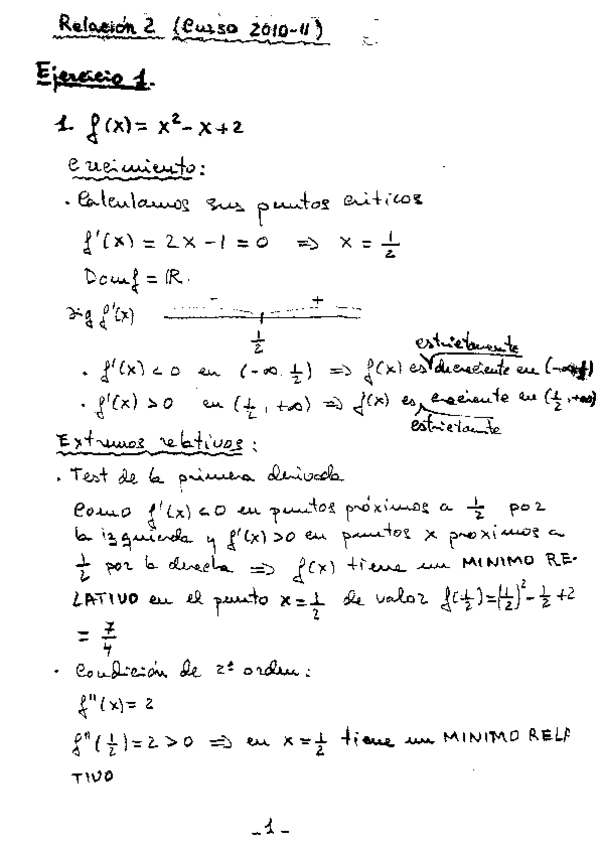 Relación 2 (Curso 2010-11)
Ejercicio 1.
1. f(x) = x² - x + 2
Crecimiento:
. Calculamos sus puntos críticos
f'(x) = 2x - 1 = 0 => x = 1/2
Dom f = ℝ.
sig f'(x) - +
1/2
estrictamente
. f'(x) < 0 en (-∞, 1/2) => f(x) es decreciente en (-∞, 1/2)
. f'(x) > 0 en (1/2, +∞) => f(x) es creciente en (1/2, +∞)
estrictamente
Extremos relativos:
. Test de la primera derivada
Como f'(x) < 0 en puntos próximos a 1/2 por
la izquierda y f'(x) > 0 en puntos x proximos a
1/2 por la derecha => f(x) tiene un MINIMO RE-
LATIVO en el punto x = 1/2 de valor f(1/2) = (1/2)² - 1/2 + 2
= 7/4
. Condición de 2ª orden:
f"(x) = 2
f"(1/2) = 2 > 0 => en x = 1/2 tiene un MINIMO RELA
TIVO
-1-